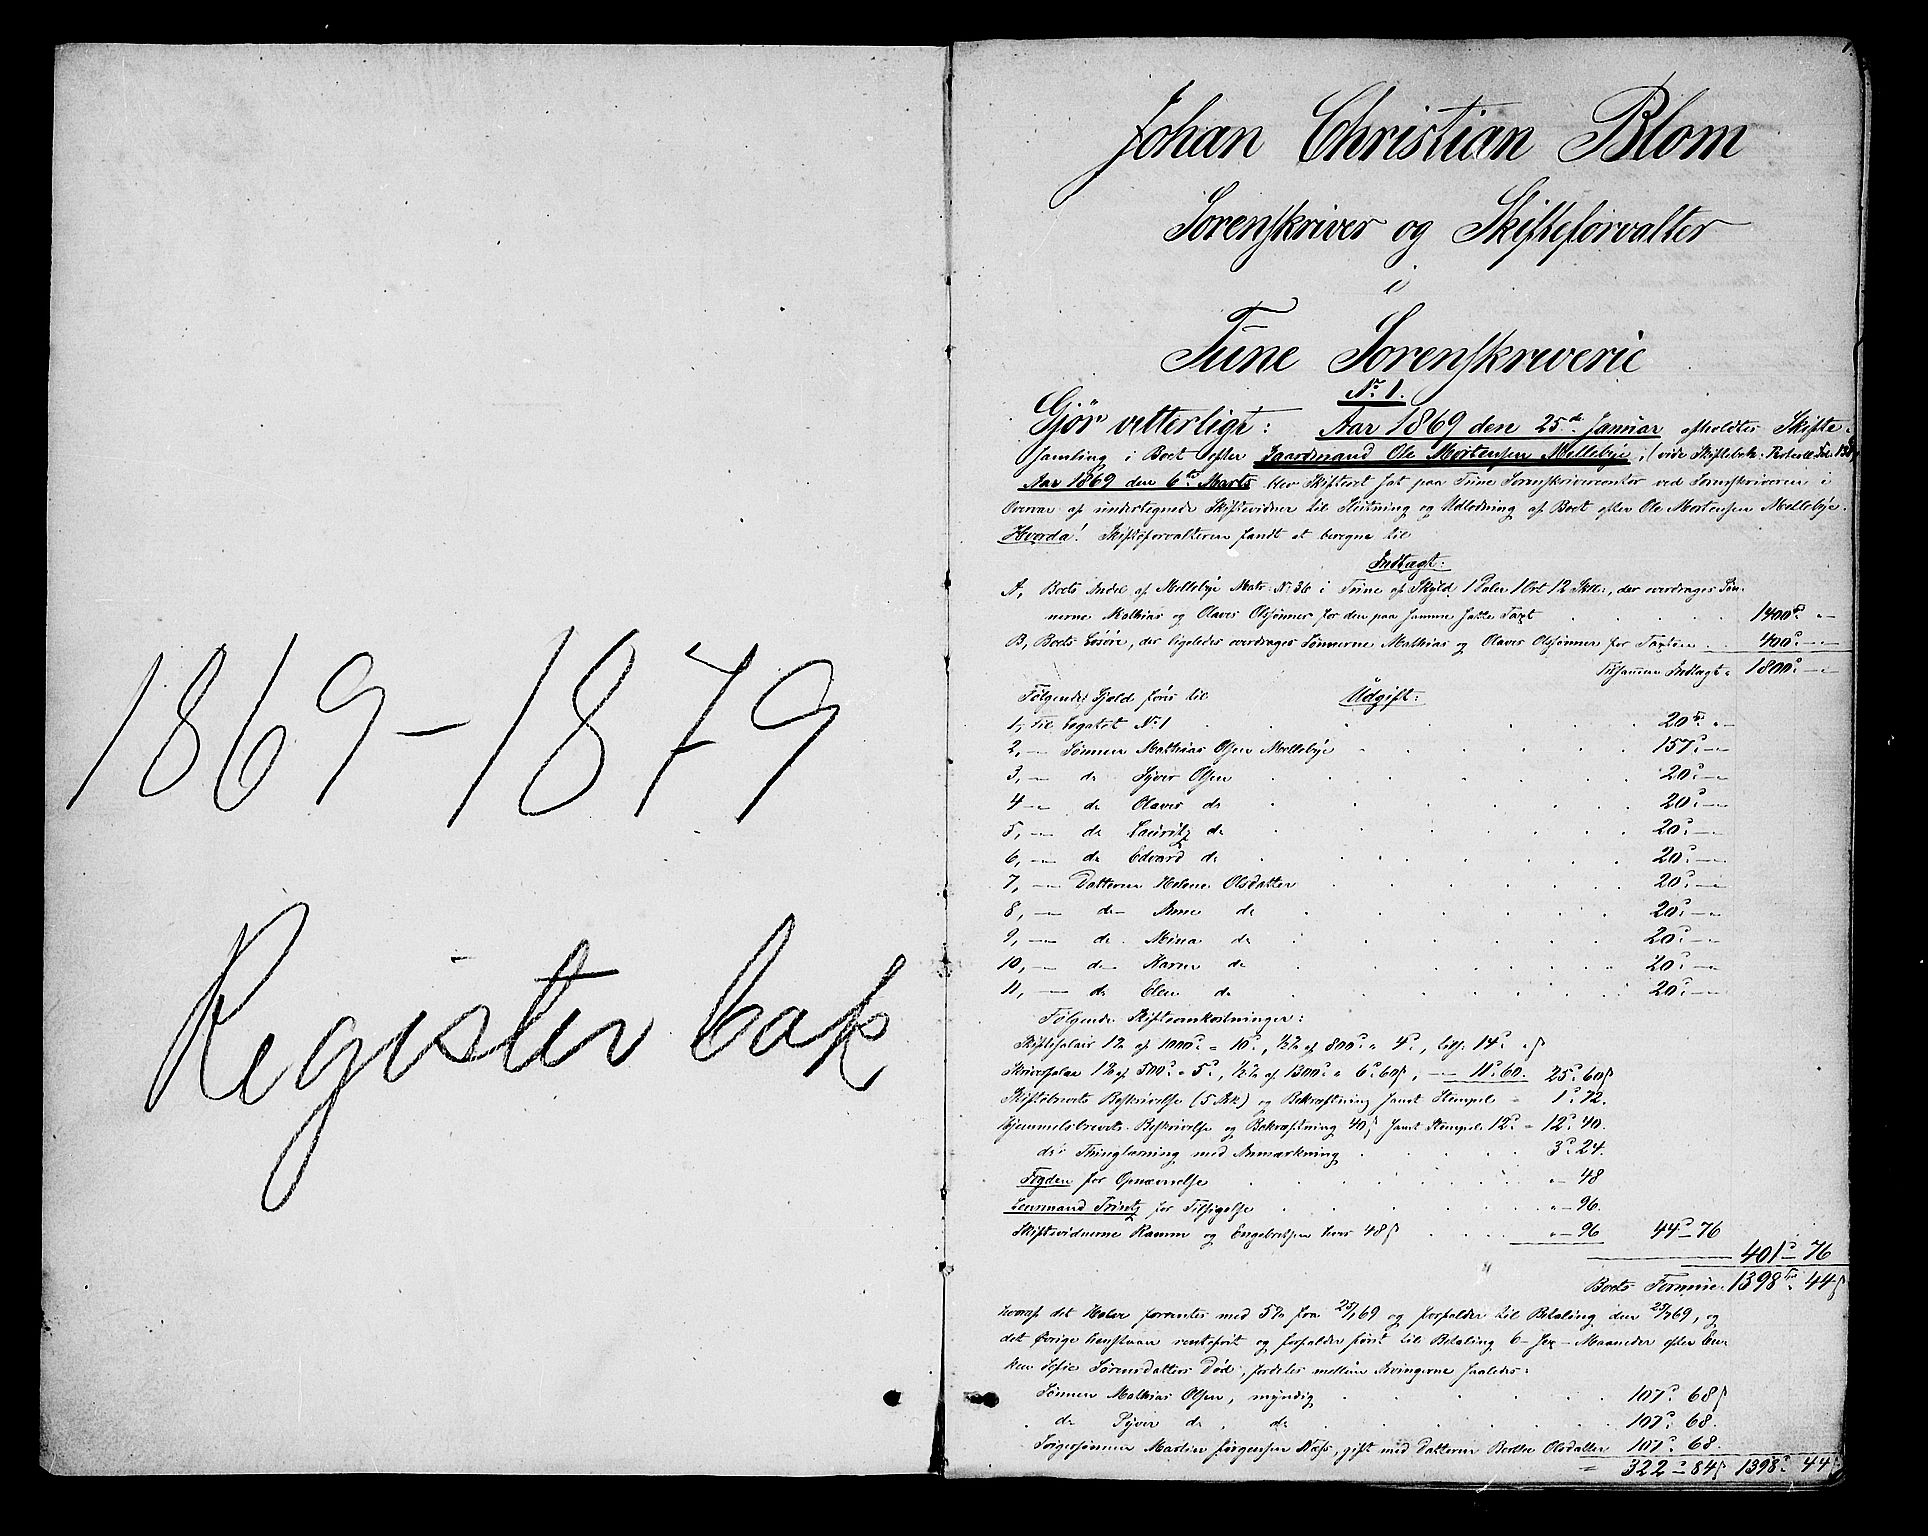 1869-1879
Register bak
Johan Christian Blom
Sorenskriver og Skifteforvalter
i
Tune Sorenskriverie
No 1.
Gjør vitterligt: Aar 1869 den 25de Januar afholdtes Skifte-
samling i Boet efter Gaardmand Ole Mortensen Mellebye, (vide Skiftebeh: Protocol Fol.
Aar 1869 den 6te Marts blev Skifteret sat paa Tune Sorenskrivercontor ved Sorenskriveren i
Overvær af undertegnede Skiftevidner til Slutning og Udlodning af Boet efter Ole Mortensen Mellebye.
Hvorda! Skifteforvalteren fandt at beregne til
Indtægt:
A, Boets Andel af Mellebye Matr: No 36 i Tune af Skyld 1 Daler 1 Ort 12 Skill:, der overdrages Søn-
nerne Mathias og Olaves Olsønner for den paa samme satte Taxt 1400 „ -„
B, Boets Løsøre, der ligeledes overdrages Sønnerne Mathias og Olaves Olsønner for Taxten 400 -„
Tilsammen Indtægt = 1800 -„
Følgende Gjeld føres til Udgift:
1, til Legatet No 1 20 „-
2, -„- Sønnen Mathias Olsen Mellebye 157 -„
3, -„- do Syver Olsen 20 -„
4 -„- do Olaves do 20 -„
5, -„- do Lauritz do 20 -„
6, -„- do Edvard do 20 -„
7, -„- Datteren Helene Olsdatter 20 -„
8, -„- do Anne do 20 -„
9, -„- do Mina do 20 -„
10, -„- do Karen do 20 -„
11, -„- do Elen do 20 -„
Følgende Skifteomkostninger:
Skiftesalair 1% af 1000 = 10, ½% af 800 = 4, 14
Skriversalær 1% af 500 = 5, ½% af 1300 = 6 60, - 11 60. 25 60
Skiftebrevets Beskrivelse (5 Ark) og Bekræftning samt Stempel = 1 72.
Hjemmelsbrevets Beskrivelse og Bekræftning 40 samt Stempel 12 = 12 40.
do Thinglæsning med Anmærkning 3 24.
Fogden for Opnævnelse „- 48
Lensmand Trintz for Tilsigelse „- 96.
Skiftevidnerne Ramm og Engebretsen hver 48 „- 96 44 - 76
401 - 76
Boets Formue: 1398 44
hvoraf det Halve forrentes med 5% fra 25/1 69 og forfalder til Betaling den 25/7 69, og
det Øvrige henstaar rentefrit og forfalder først til Betaling 6 - Sex - Maaneder efter En-
ken Sofie Sørensdatters Død, fordeles mellem Arvingerne saaledes:
Sønnen Mathias Olsen, myndig 107 68
do Syver do, do 107 68.
Svigersønnen Martin Jørgensen Næss, gift med Datteren Berthe Olsdatter 107 68.
= 322 - 84 1398 44